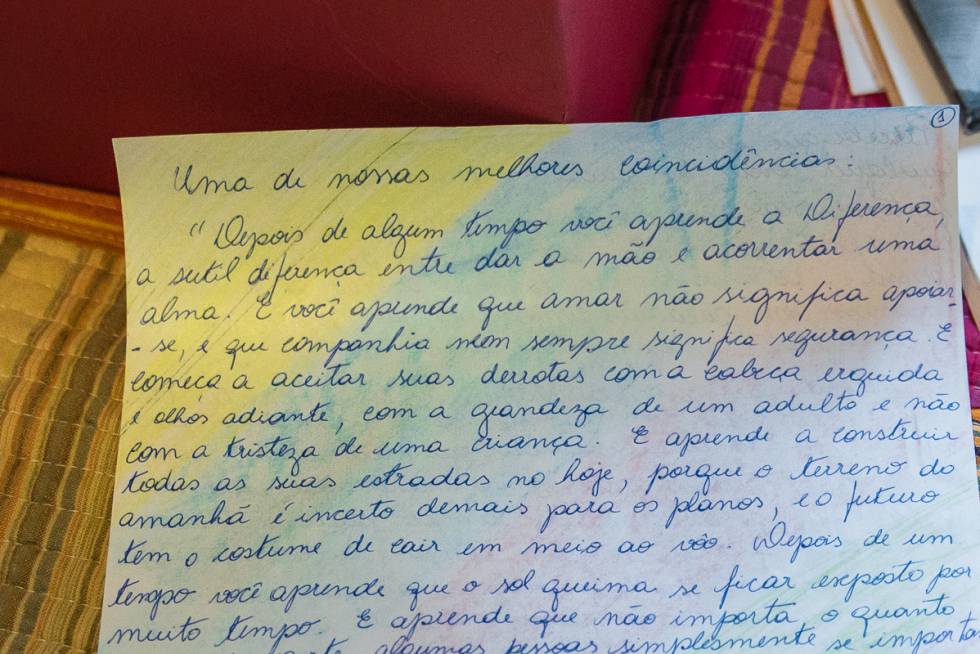 1
Uma de nossas melhores coincidências:
"Depois de algum tempo você aprende a Diferença,
a sutil diferença entre dar a mão e acorrentar uma
alma. E você aprende que amar não significa apoiar-
-se, e que companhia nem sempre significa segurança. E
começa a aceitar suas derrotas com a cabeça erguida
e olhos adiante, com a grandeza de um adulto e não
com a tristeza de uma criança. E aprende a construir
todas as suas estradas no hoje, porque o terreno do
amanhã é incerto demais para os planos, e o futuro
tem o costume de cair em meio ao vôo. Depois de um
tempo você aprende que o sol queima se ficar exposto por
muito tempo. E aprende que não importa o quanto
algumas pessoas simplesmente se importa